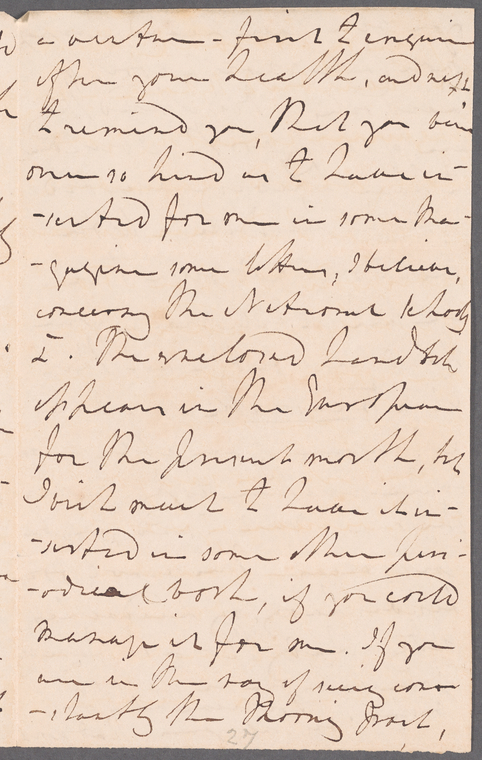 a venture - first to enquire
after your health, and next
to remind you, that you were
once so kind as to have in-
-serted for me in some Ma-
-gazine some letters, I believe,
concerning the National Schools
I. The enclosed
appears in the European
for the present month, but
I wish much to have it in-
-serted in some other peri-
-odical work, if you could
manage it for me. If you
are in the way of seeing con-
-stantly the Morning Post,
27